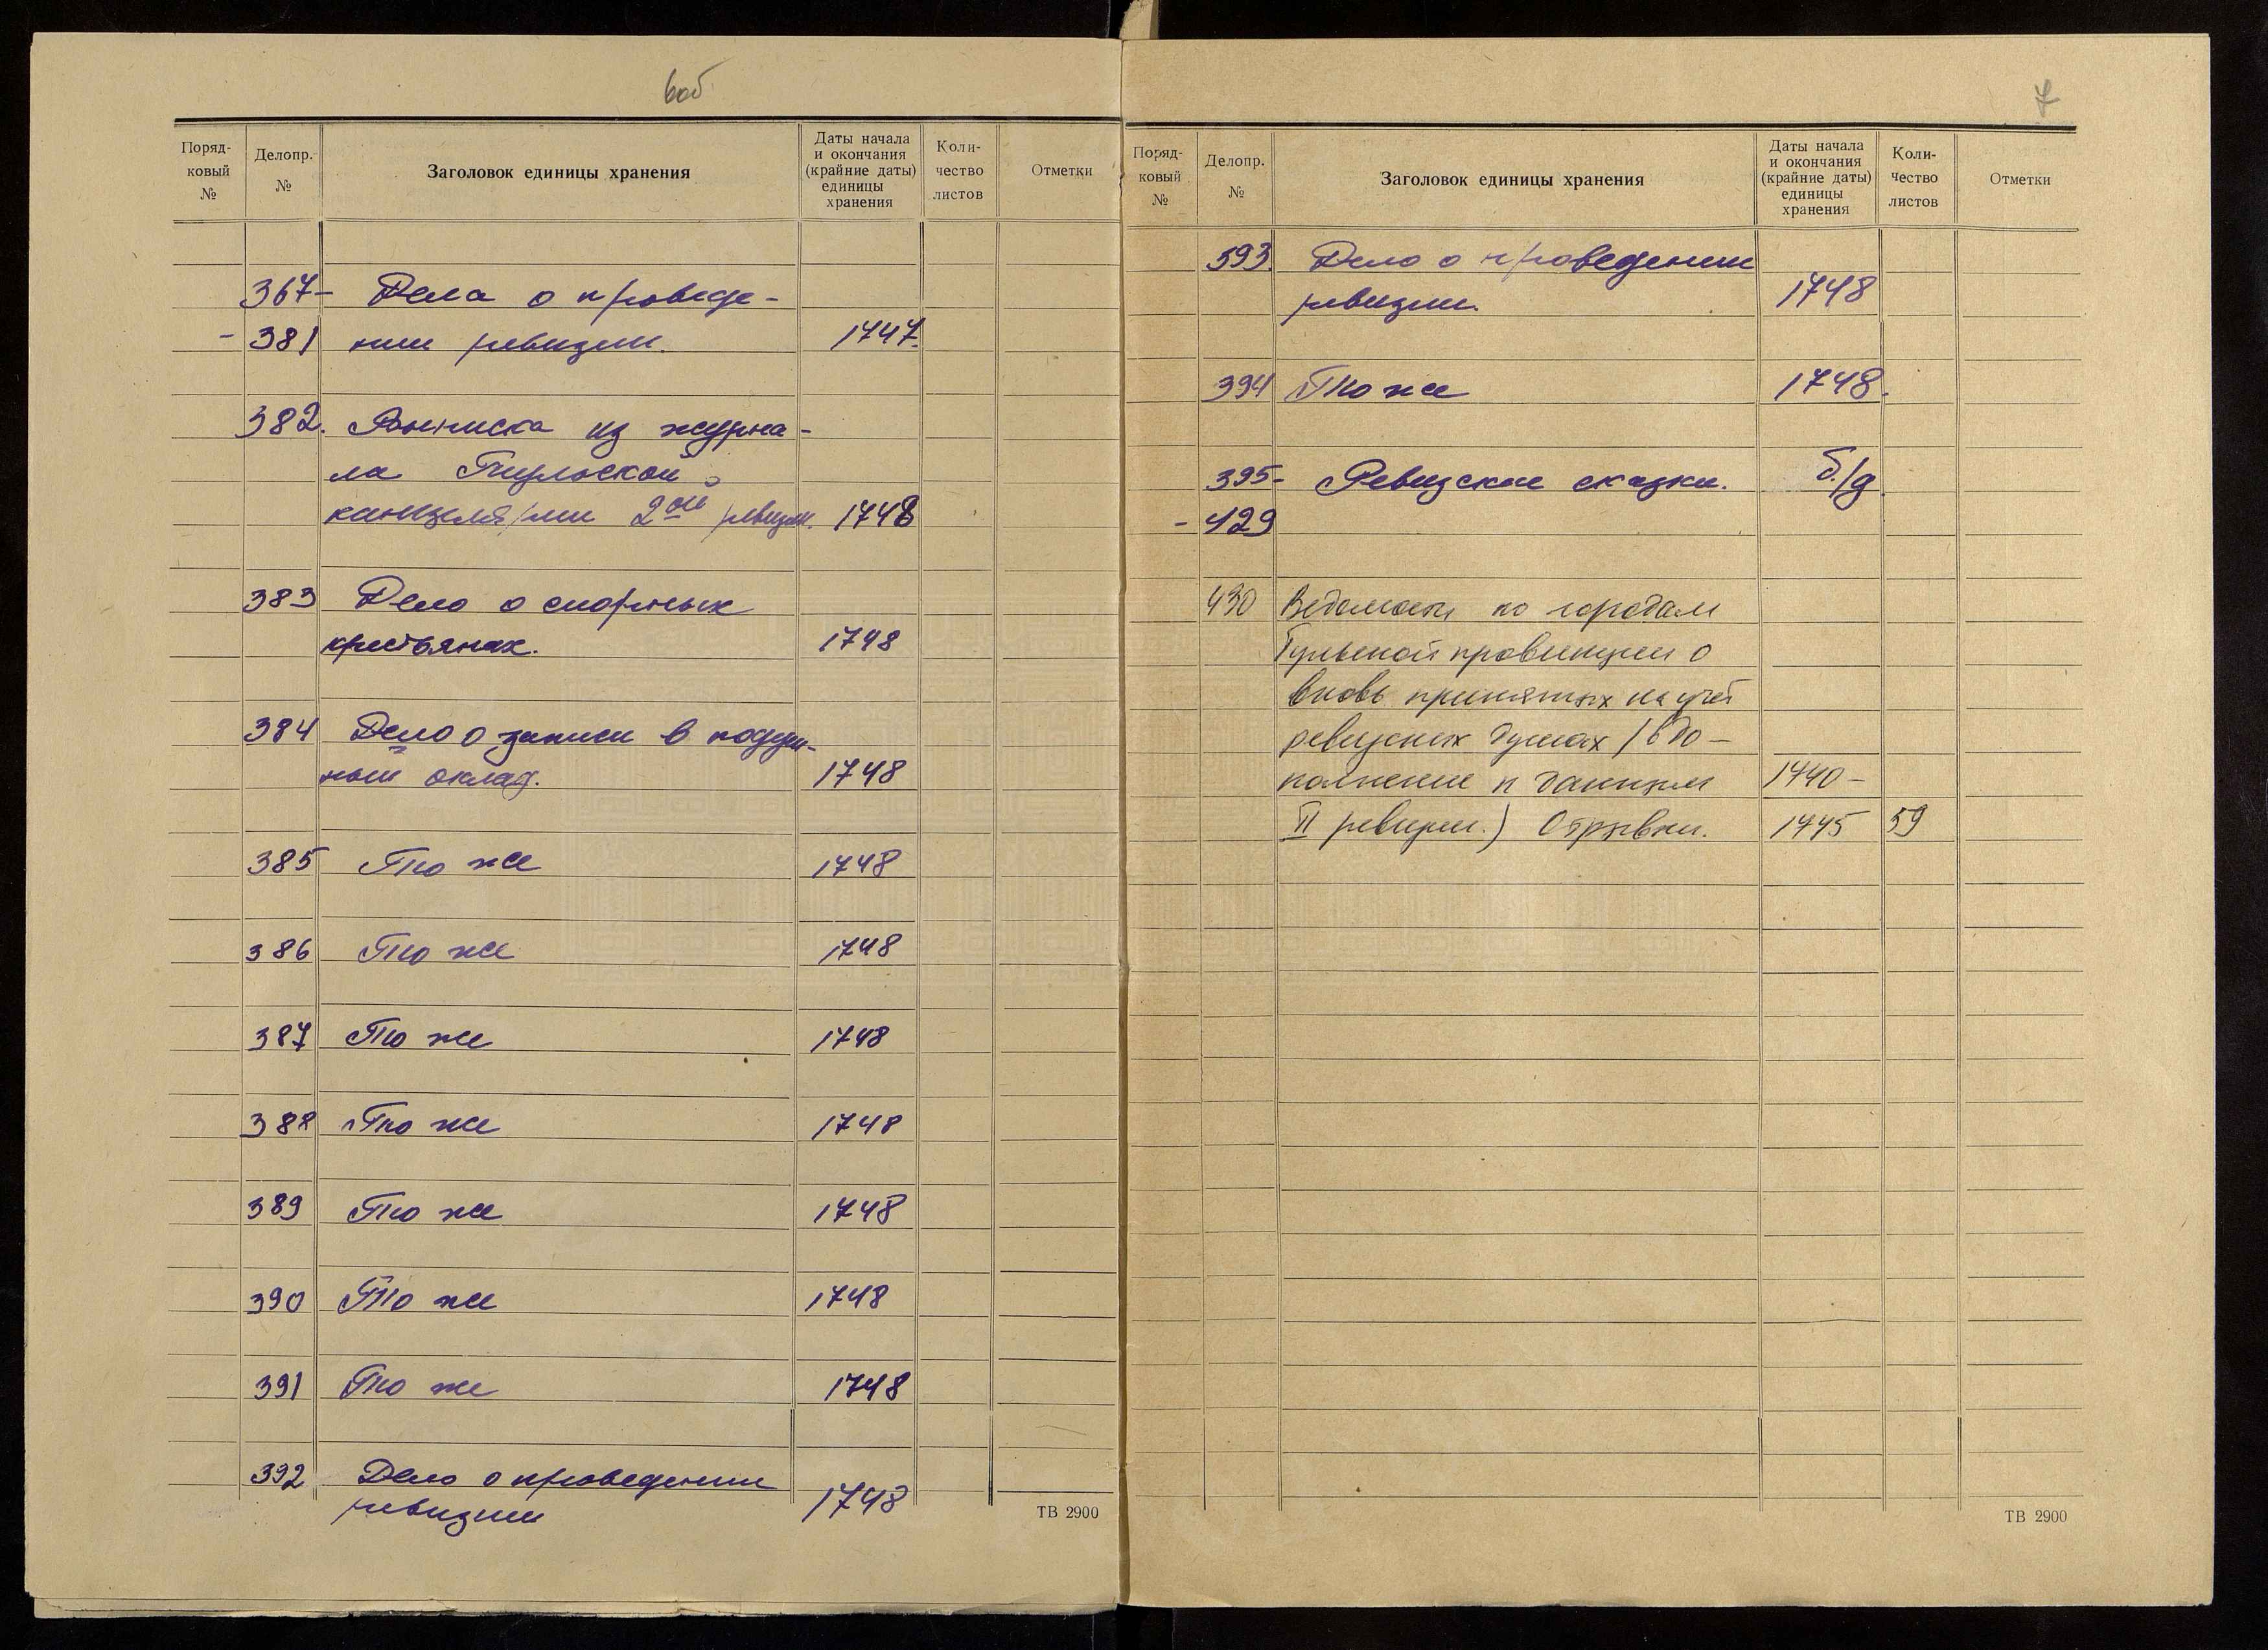 6об
Поряд-
ковый
№
Делопр.
№
Заголовок единицы хранения
Даты начала
и окончания
(крайние даты)
единицы
хранения
Коли-
чество
листов
Отметки
367- Дела о проведе-
- 381 нии ревизии. 1747.
382. Выписка из журна-
ла Тульской
канцелярии 2ой ревизии. 1748
383 Дело о спорных
крестьянах. 1748
384 Дело о записи в подуш-
ный оклад. 1748
385 То же 1748
386 То же 1748
387 То же 1748
388 То же 1748
389 То же 1748
390 То же 1748
391 То же 1748
392 Дело о проведении
ревизии 1748
ТВ 2900
7
Поряд-
ковый
№
Делопр.
№
Заголовок единицы хранения
Даты начала
и окончания
(крайние даты)
единицы
хранения
Коли-
чество
листов
Отметки
593. Дело о проведении
ревизии. 1748
394 То же 1748.
395- Ревизские сказки. б/д.
- 429
430 Ведомости по городам
Тульской провинции о
вновь принятых на учет
ревизских душах /в до-
полнение к данным 1740-
II ревизии.) Отрывки. 1745 59
ТВ 2900